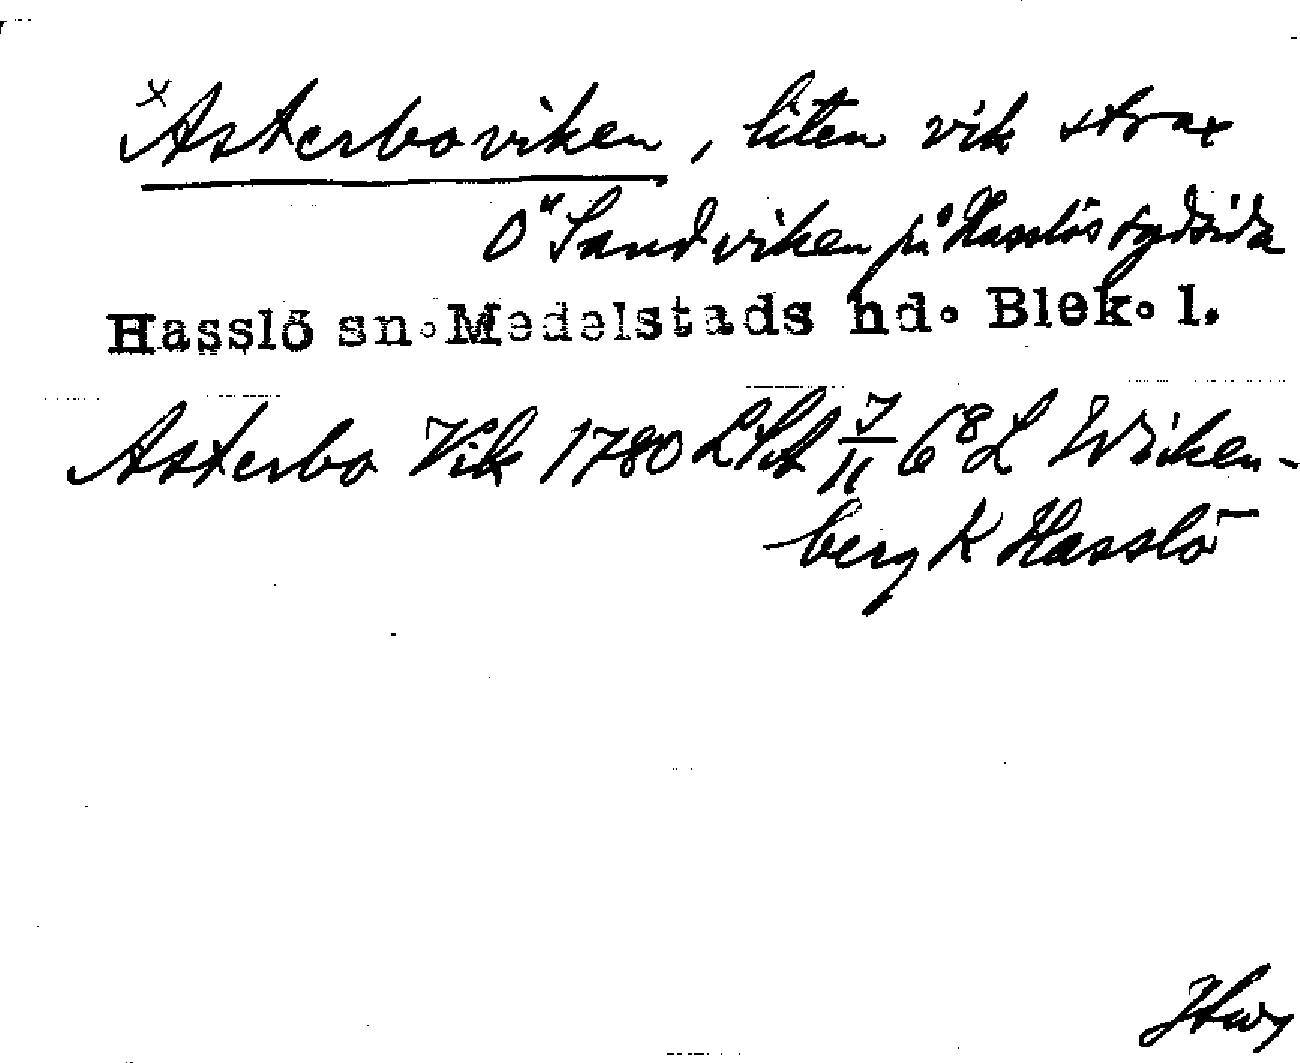 × Asterboviken, liten vik strax
Ö Sandviken på Hasslös sydsida
Hasslö sn. Medelstads hd. Blek. l.
Asterbo Vik 1780 LSA J/11 6⁸ L Wiken-
berg K Hasslö